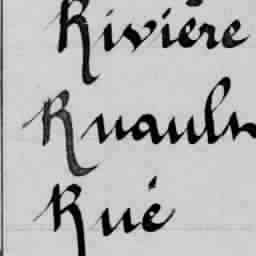 Rivière
Ruault
Rué